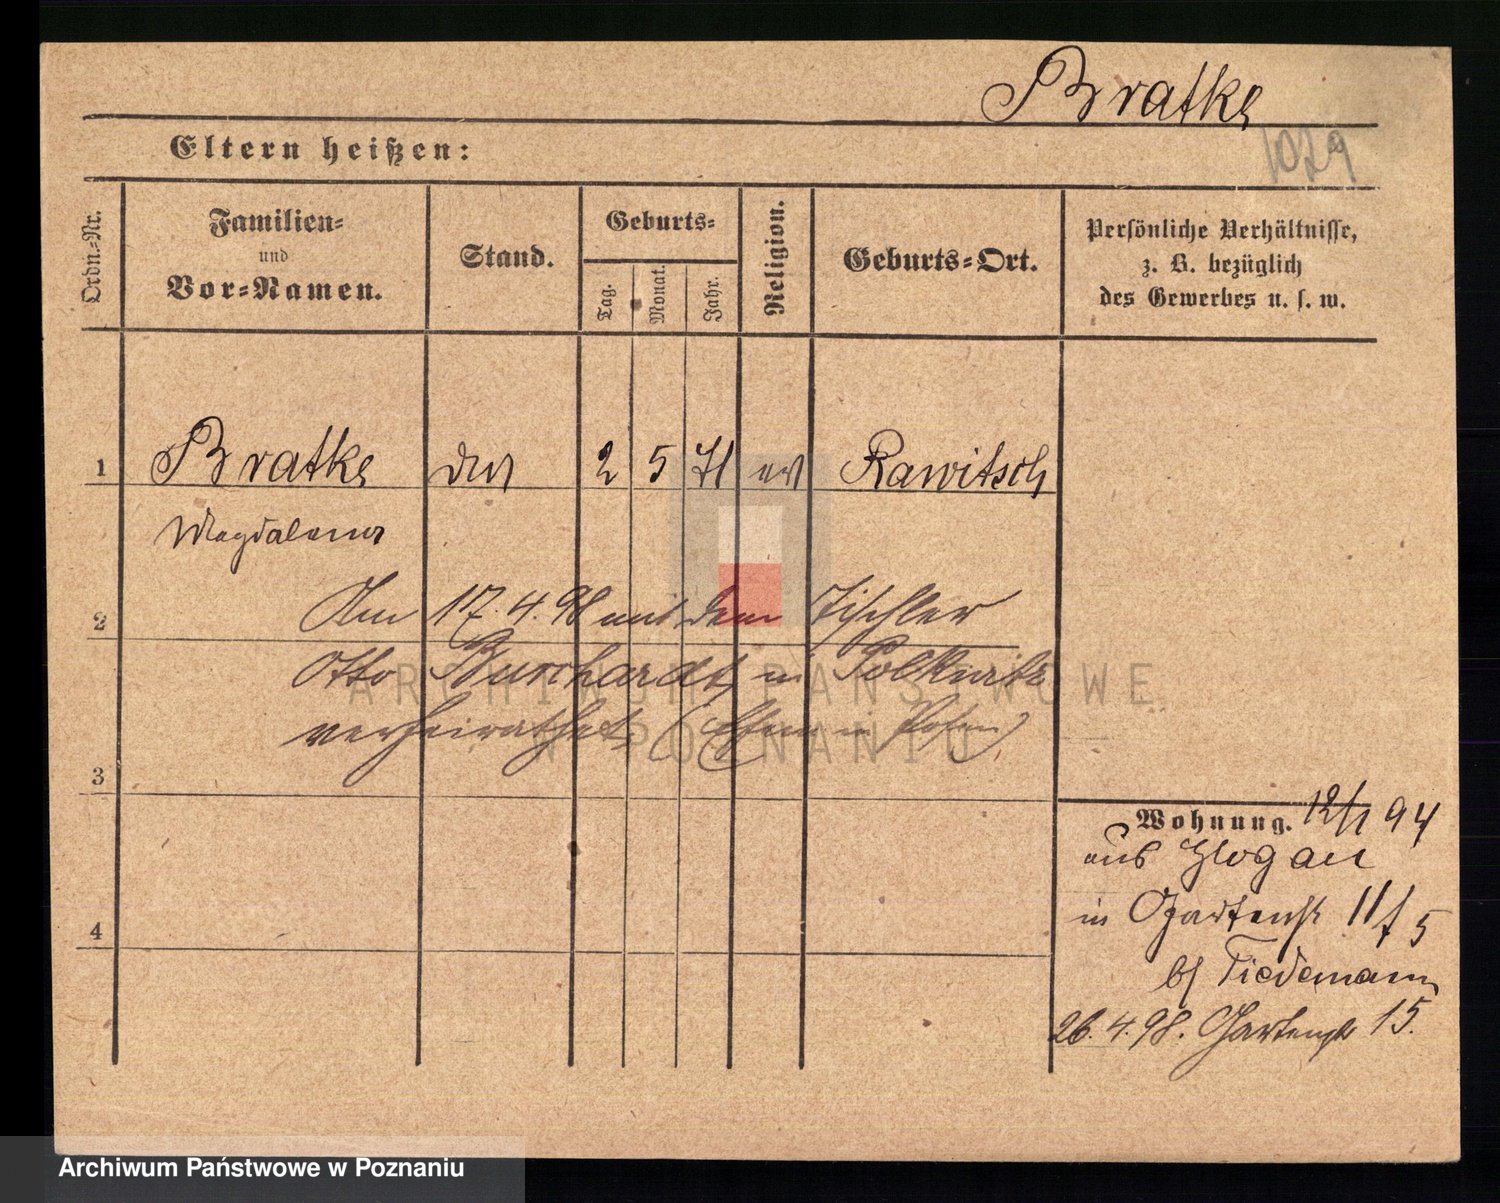 Bratke
1079
Eltern heißen:
Ordn.-Nr.
Familien-
und
Vor-Namen.
Stand.
Geburts-
Tag.
Monat.
Jahr.
Religion.
Geburts-Ort.
Persönliche Verhältnisse,
z. B. bezüglich
des Gewerbes u. s. w.
1 Bratke 2 5 71 ev Rawitsch
Magdalena
Am 17.4.98 mit dem Tischler
2
Otto Burchardt, in
verheirathet, in Posen)
3
Wohnung. 12/1 94
aus Glogau
in Gartenstr 11/5
4
b/ Tiedemann
26.4.98. Gartenstr 15.
ARCHIWUM PAŃSTWOWE
W POZNANIU
Archiwum Państwowe w Poznaniu